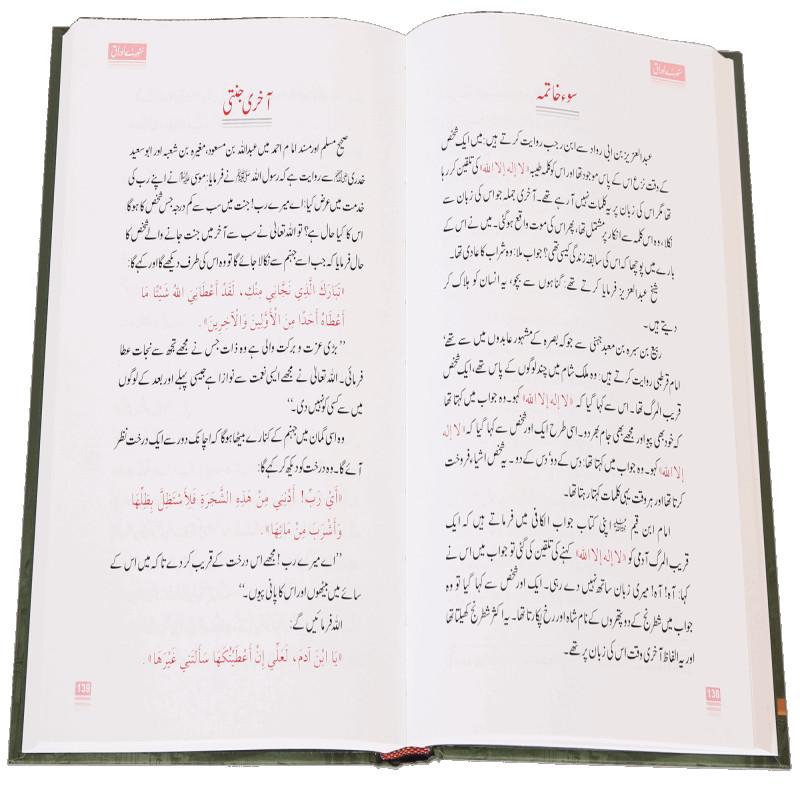 سنہرے اوراق
سوء خاتمہ
عبدالعزیز بن ابی رواد سے ابن رجب روایت کرتے ہیں: میں ایک شخص
کے وقت نزع اس کے پاس موجود تھا اور اس کو کلمہ طیبہ «لا إله إلا الله» کی تلقین کر رہا
تھا مگر اس کی زبان پر یہ کلمات نہیں آ رہے تھے۔ آخری جملہ جو اس کی زبان سے
نکلا، وہ اس کلمہ سے انکار پر مشتمل تھا، پھر اس کی موت واقع ہو گئی۔ میں نے اس کے
بارے میں پوچھا کہ اس کی سابقہ زندگی کیسی تھی؟ جواب ملا: وہ شراب کا عادی تھا۔
شیخ عبدالعزیز فرمایا کرتے تھے: گناہوں سے بچو، یہ انسان کو ہلاک کر
دیتے ہیں۔
ربیع بن سبرہ بن معبد جہنی سے جو کہ بصرہ کے مشہور عابدوں میں سے تھے
امام قرطبی روایت کرتے ہیں: وہ ملک شام میں چند لوگوں کے پاس تھے، ایک شخص
قریب المرگ تھا۔ اس سے کہا گیا کہ «لا إله إلا الله» کہو۔ وہ جواب میں کہتا تھا
کہ خود بھی پیو اور مجھے بھی جام بھر دو۔ اسی طرح ایک اور شخص سے کہا گیا کہ «لا إله
إلا الله» کہو۔ وہ جواب میں کہتا تھا: دس کے دو، دس کے دو۔ یہ شخص اشیاء فروخت
کرتا تھا اور ہر وقت یہی کلمات کہتا رہتا تھا۔
امام ابن قیم اپنی کتاب جواب الکافی میں فرماتے ہیں کہ ایک
قریب المرگ آدمی کو «لا إله إلا الله» کہنے کی تلقین کی گئی تو جواب میں اس نے
کہا: آہ! آہ! میری زبان ساتھ نہیں دے رہی۔ ایک اور شخص سے کہا گیا تو وہ
جواب میں شطرنج کے دو پتھروں کے نام شاہ اور رخ پکارتا تھا۔ یہ اکثر شطرنج کھیلتا تھا
اور یہ الفاظ آخری وقت اس کی زبان پر تھے۔
138
سنہرے اوراق
آخری جنتی
صحیح مسلم اور مسند امام احمد میں عبداللہ بن مسعود، مغیرہ بن شعبہ اور ابو سعید
خدری سے روایت ہے کہ رسول اللہ ﷺ نے فرمایا: موسی نے اپنے رب کی
خدمت میں عرض کیا: اے میرے رب! جنت میں سب سے کم درجہ جس شخص کا ہوگا
اس کا کیا حال ہے؟ تو اللہ تعالیٰ نے سب سے آخر میں جنت جانے والے شخص کا
حال فرمایا کہ جب اسے جہنم سے نکالا جائے گا تو وہ اس کی طرف دیکھے گا اور کہے گا:
«تَبَارَكَ الَّذِي نَجَّانِي مِنْكِ، لَقَدْ أَعْطَانِيَ اللهُ شَيْئًا مَا
أَعْطَاهُ أَحَدًا مِنَ الْأَوَّلِينَ وَالْآخِرِينَ».
’’بڑی عزت و برکت والی ہے وہ ذات جس نے مجھے تجھ سے نجات عطا
فرمائی۔ اللہ تعالیٰ نے مجھے ایسی نعمت سے نوازا ہے جیسی پہلے اور بعد کے لوگوں
میں سے کسی کو نہیں دی۔‘‘
وہ اسی گمان میں جہنم کے کنارے بیٹھا ہوگا کہ اچانک دور سے ایک درخت نظر
آئے گا۔ وہ درخت کو دیکھ کر کہے گا:
«أَيْ رَبِّ! أَدْنِنِي مِنْ هَذِهِ الشَّجَرَةِ فَلِأَسْتَظِلَّ بِظِلِّهَا
وَأَشْرَبَ مِنْ مَائِهَا».
’’اے میرے رب! مجھے اس درخت کے قریب کر دے تاکہ میں اس کے
سائے میں بیٹھوں اور اس کا پانی پیوں۔‘‘
اللہ فرمائیں گے:
«يَا ابْنَ آدَمَ، لَعَلِّي إِنْ أَعْطَيْتُكَهَا سَأَلْتَنِي غَيْرَهَا».
139